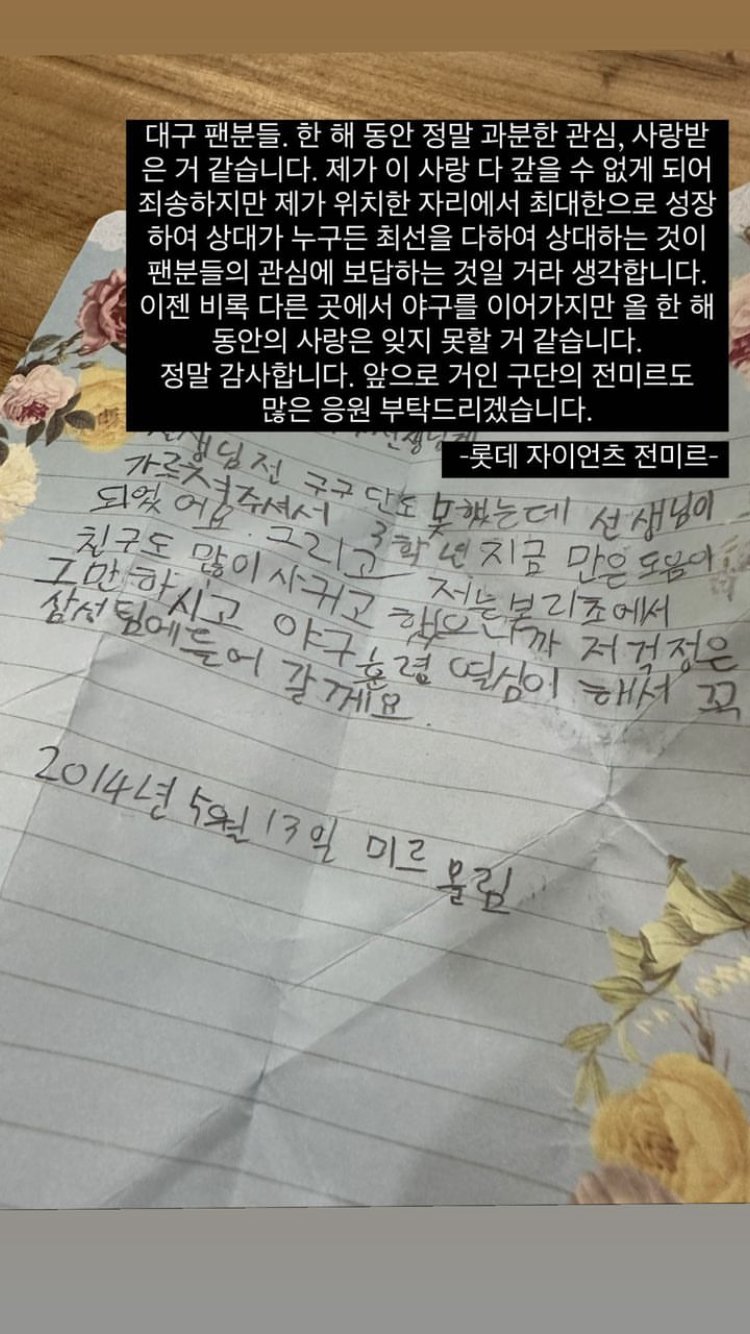 대구 팬분들. 한 해 동안 정말 과분한 관심, 사랑받
은 거 같습니다. 제가 이 사랑 다 갚을 수 없게 되어
죄송하지만 제가 위치한 자리에서 최대한으로 성장
하여 상대가 누구든 최선을 다하여 상대하는 것이
팬분들의 관심에 보답하는 것일 거라 생각합니다.
이젠 비록 다른 곳에서 야구를 이어가지만 올 한 해
동안의 사랑은 잊지 못할 거 같습니다.
정말 감사합니다. 앞으로 거인 구단의 전미르도
많은 응원 부탁드리겠습니다.
-롯데 자이언츠 전미르-
선생님전 구구단도 못했는데 선생님이
가르쳐주셔서 3학년 지금 만은 도움이
되었어요. 그리고 저는본리초에서
친구도 많이 사귀고 했으니까 저 걱정은
그만하시고 야구훈령 열심이 해서 꼭
삼성팀에들어 갈께요.
2014년 5월 13일 미르 올림